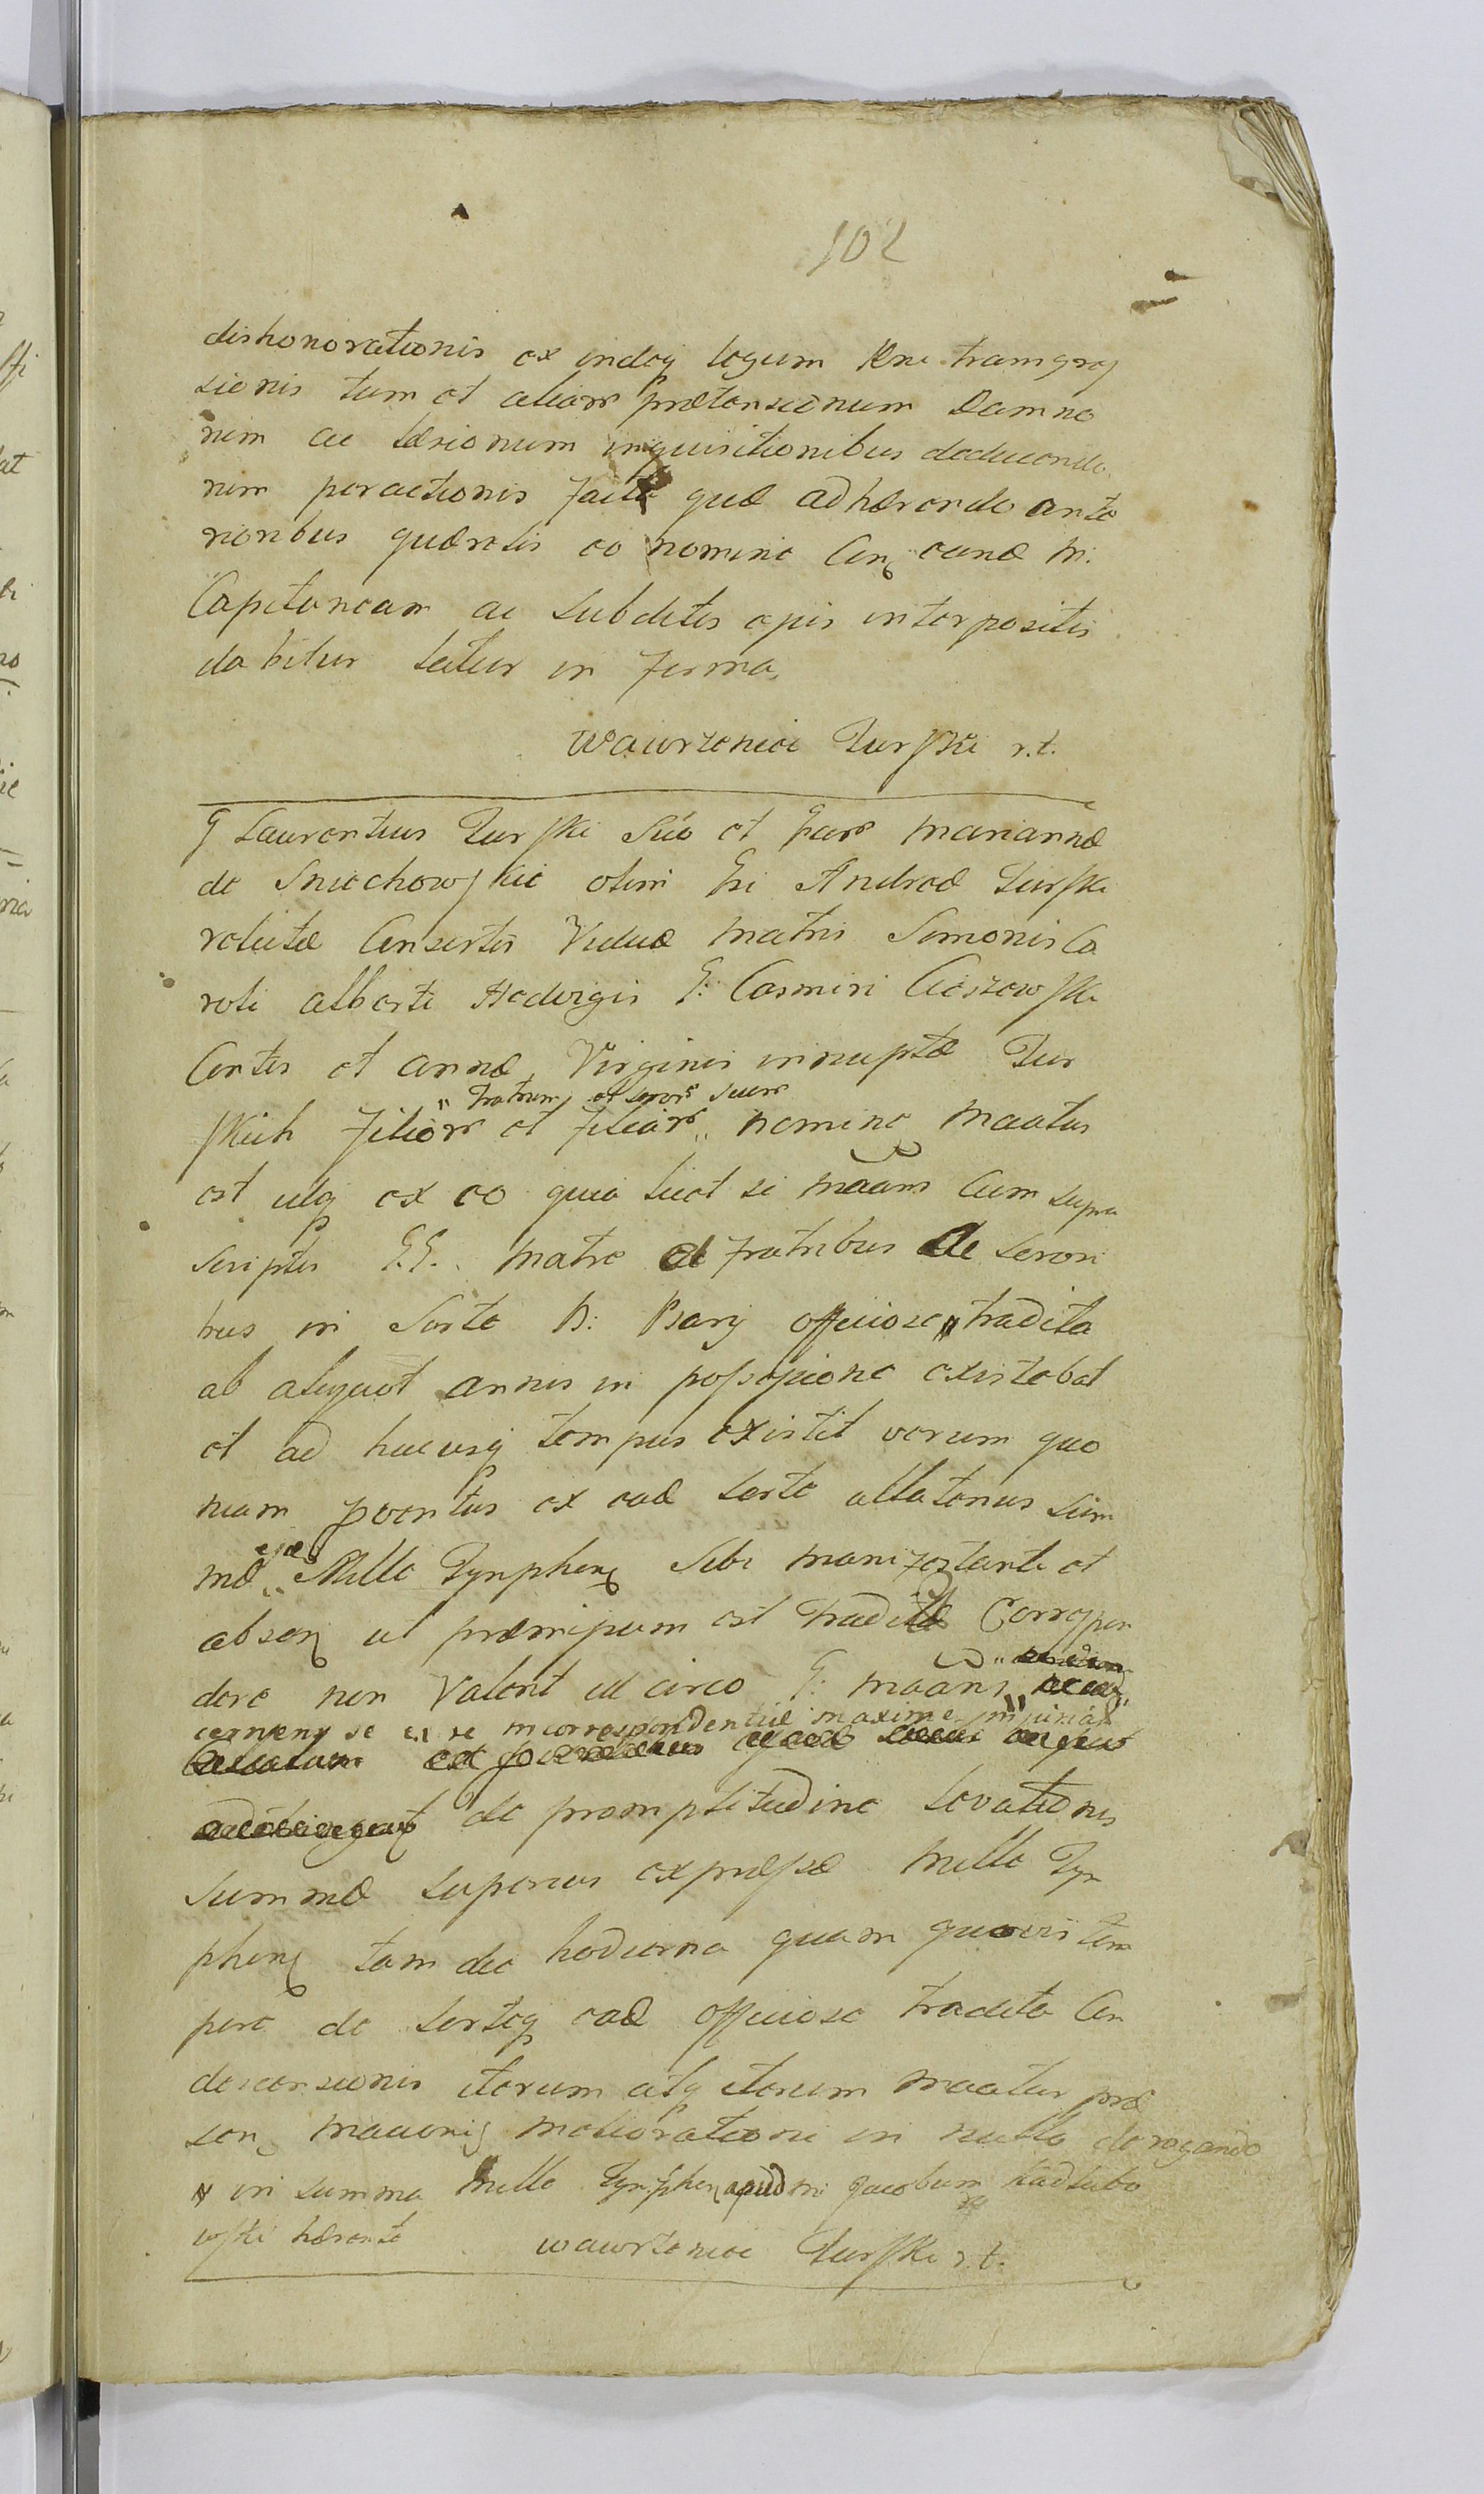 102
dishonorationis ex indeq legum Rni transgres
sionis tum et alior prætensionum Damno
rum ac læsionum inquisitionibus deducendo
rum peractionis facta quæ adhærendo ante
rioribus quærelis eo nomine Con eand M:
Capitaneam ac subditis ejus interpositis
dabitur latius in forma
Wawrzeniec Turski r.t.
G Laurentius Turski Suo et Gen Mariannæ
de Sniechowskie olim Gsi Andreæ Turski
relictæ Consortis Viduæ Matris Simonis Ca
roli Alberti Hedvigis G: Casimiri Cieszowski
Contis et Annæ Virginis innuptæ Tur
" fratrum et soror suar
skich Filior et Filiar " nomine Maatus
est idq ex eo quia licet se Maans Cum supra
scriptis G.G. Matre et fratribus ac sorori
bus in Sorte B: Psary officiose tradita
ab aliquot annis in possessione existebat
et ad hucusq tempus existit verum quo
niam proventus ex ead sorte allatenus Sum
mæ " Mille Tynphen Sibi manifestante et
absen ut præmissum est Traditæ Correspon
dere non Valent id circo G: Maans
cernens se ex re incorrespondentiæ maxime injuriari
de promptitudine levationis
Summæ superius expressæ Mille Tyn
phen tam die hodierna quam quovis tem
pore de sorteq ead officiose tradita Con
descensionis iterum atq iterum Maatur præ
sen Maaonis melioratione in nullo derogando
in summa Mille Tynphen apud M Jacobum Radlubo
wski hærente Wawrzeniec Turski r.t.